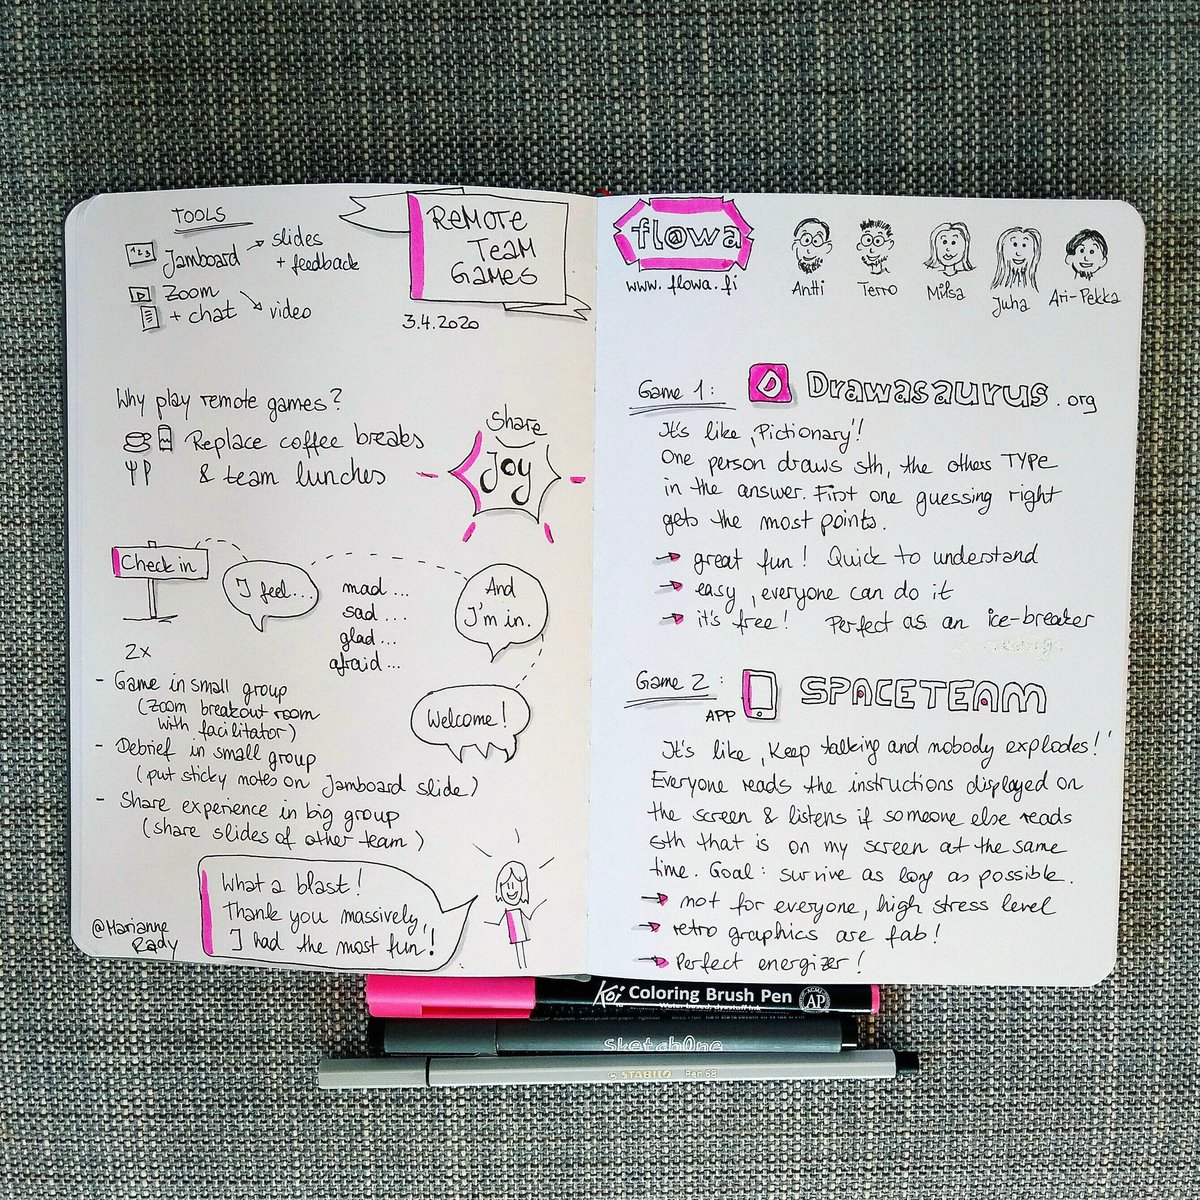 TOOLS
1 2 3
Jamboard
slides
+ feedback
Zoom
+ chat
video
ReMOTE
TEAM
GAMES
3.4.2020
Why play remote games?
Replace coffee breaks
& team lunches
Share
Joy
Check in
I feel...
mad...
sad...
glad...
afraid...
And
I'm in.
Welcome!
2x
- Game in small group
(Zoom breakout room
with facilitator)
- Debrief in small group
(put sticky notes on Jamboard slide)
- Share experience in big group
(share slides of other team)
What a blast!
Thank you massively,
I had the most fun!
@Marianne
Rady
fl@wa
www.flowa.fi
Antti
Terro
Milsa
Juha
Ari-Pekka
Game 1:
D
Drawasaurus.org
It's like ‚Pictionary'!
One person draws sth, the others TYPE
in the answer. First one guessing right
gets the most points.
→ great fun! Quick to understand
→ easy, everyone can do it
→ it's free! Perfect as an ice-breaker
Game 2:
APP
SPACETEAM
It's like ‚Keep talking and nobody explodes!'
Everyone reads the instructions displayed on
the screen & listens if someone else reads
sth that is on my screen at the same
time. Goal: survive as long as possible.
→ not for everyone, high stress level
→ retro graphics are fab!
→ Perfect energizer!
Koi Coloring Brush Pen
Water based dyestuff ink
ACME
AP
SketchOne
STABILO Pen 68